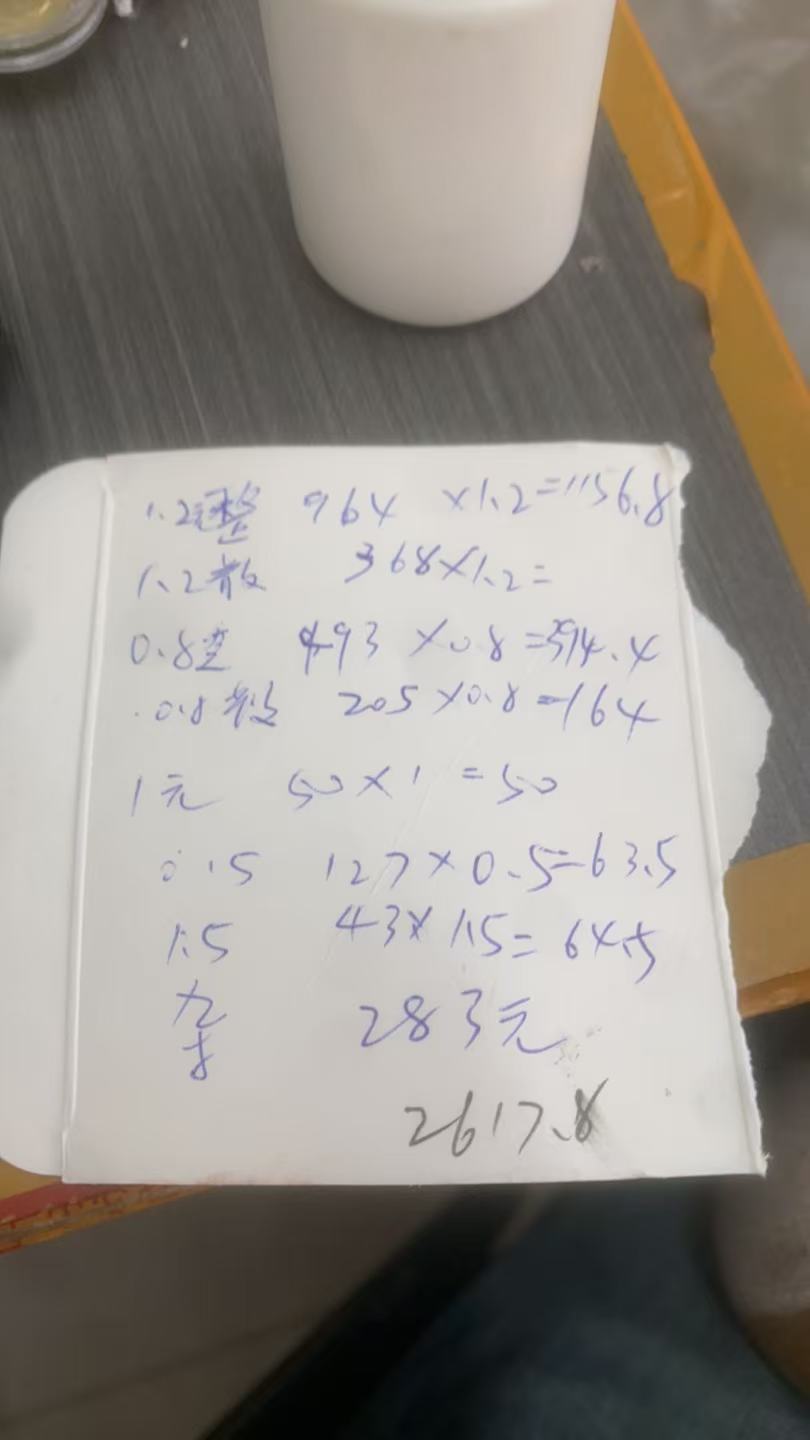 1.2整 964 ×1.2=1156.8
1.2散 368×1.2=
0.8整 493 ×0.8=394.4
0.8散 205×0.8=164
1元 50×1=50
0.5 127×0.5=63.5
1.5 43×1.5=64.5
283元
2617.8